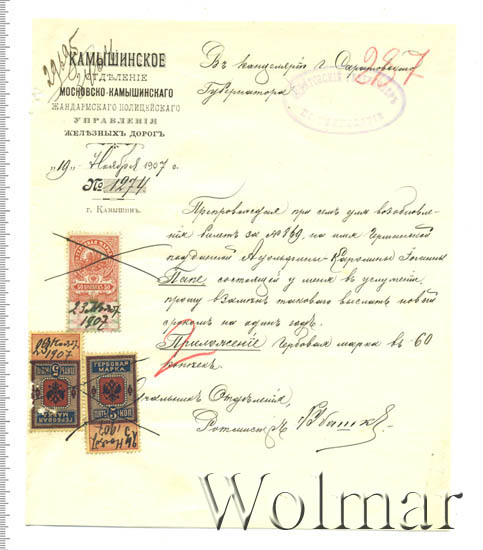 КАМЫШИНСКОЕ
ОТДѢЛЕНІЕ
МОСКОВСКО-КАМЫШИНСКАГО
ЖАНДАРМСКАГО ПОЛИЦЕЙСКАГО
УПРАВЛЕНІЯ
ЖЕЛѢЗНЫХЪ ДОРОГЪ
"19" Ноября 1907 г.
№ 1274
г. Камышинъ.
Въ канцелярію г. Саратовскаго
Губернатора
287
Препровождая при семъ для возобновле-
нія билетъ за № 869, на имя Германской
подданной
Папе, состоящей у меня въ услуженіи,
прошу взамѣнъ таковаго выслать новый
срокомъ на одинъ годъ.
Приложеніе Гербовая марка въ 60
копѣекъ.
Начальникъ Отдѣленія,
Ротмистръ
50 КОПѢЕКЪ 50
1907
ГЕРБОВАЯ
МАРКА
5 КОП. 5
1907
ГЕРБОВАЯ
МАРКА
1907
Wolmar